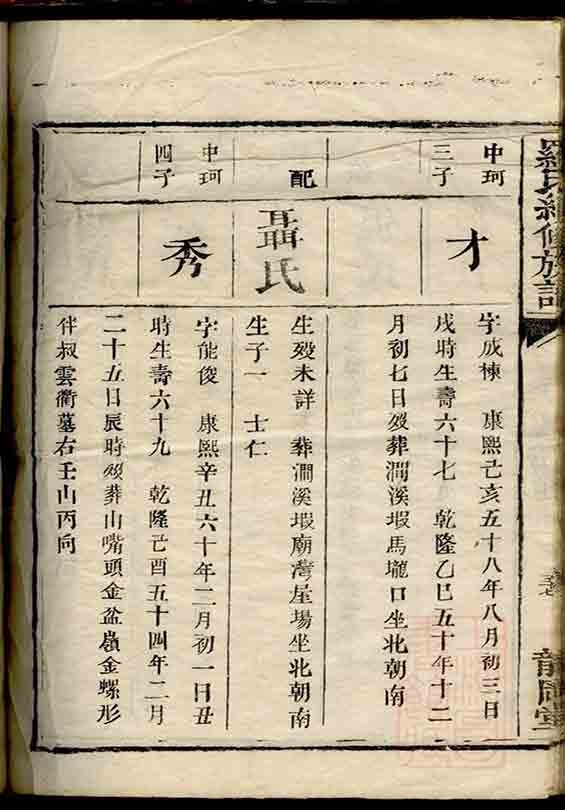 羅氏續修族譜
龍門堂
中珂
三子
才
字成棟 康熙己亥五十八年八月初三日
戌時生壽六十七 乾隆乙巳五十年十二
月初七日歿葬澗溪塅馬壠口坐北朝南
配
聶氏
生歿未詳 葬澗溪塅廟灣屋場坐北朝南
生子一 士仁
中珂
四子
秀
字能俊 康熙辛丑六十年二月初一日丑
時生壽六十九 乾隆己酉五十四年二月
二十五日辰時歿葬山嘴頭金盆嶺金螺形
伴叔雲衢墓右壬山丙向